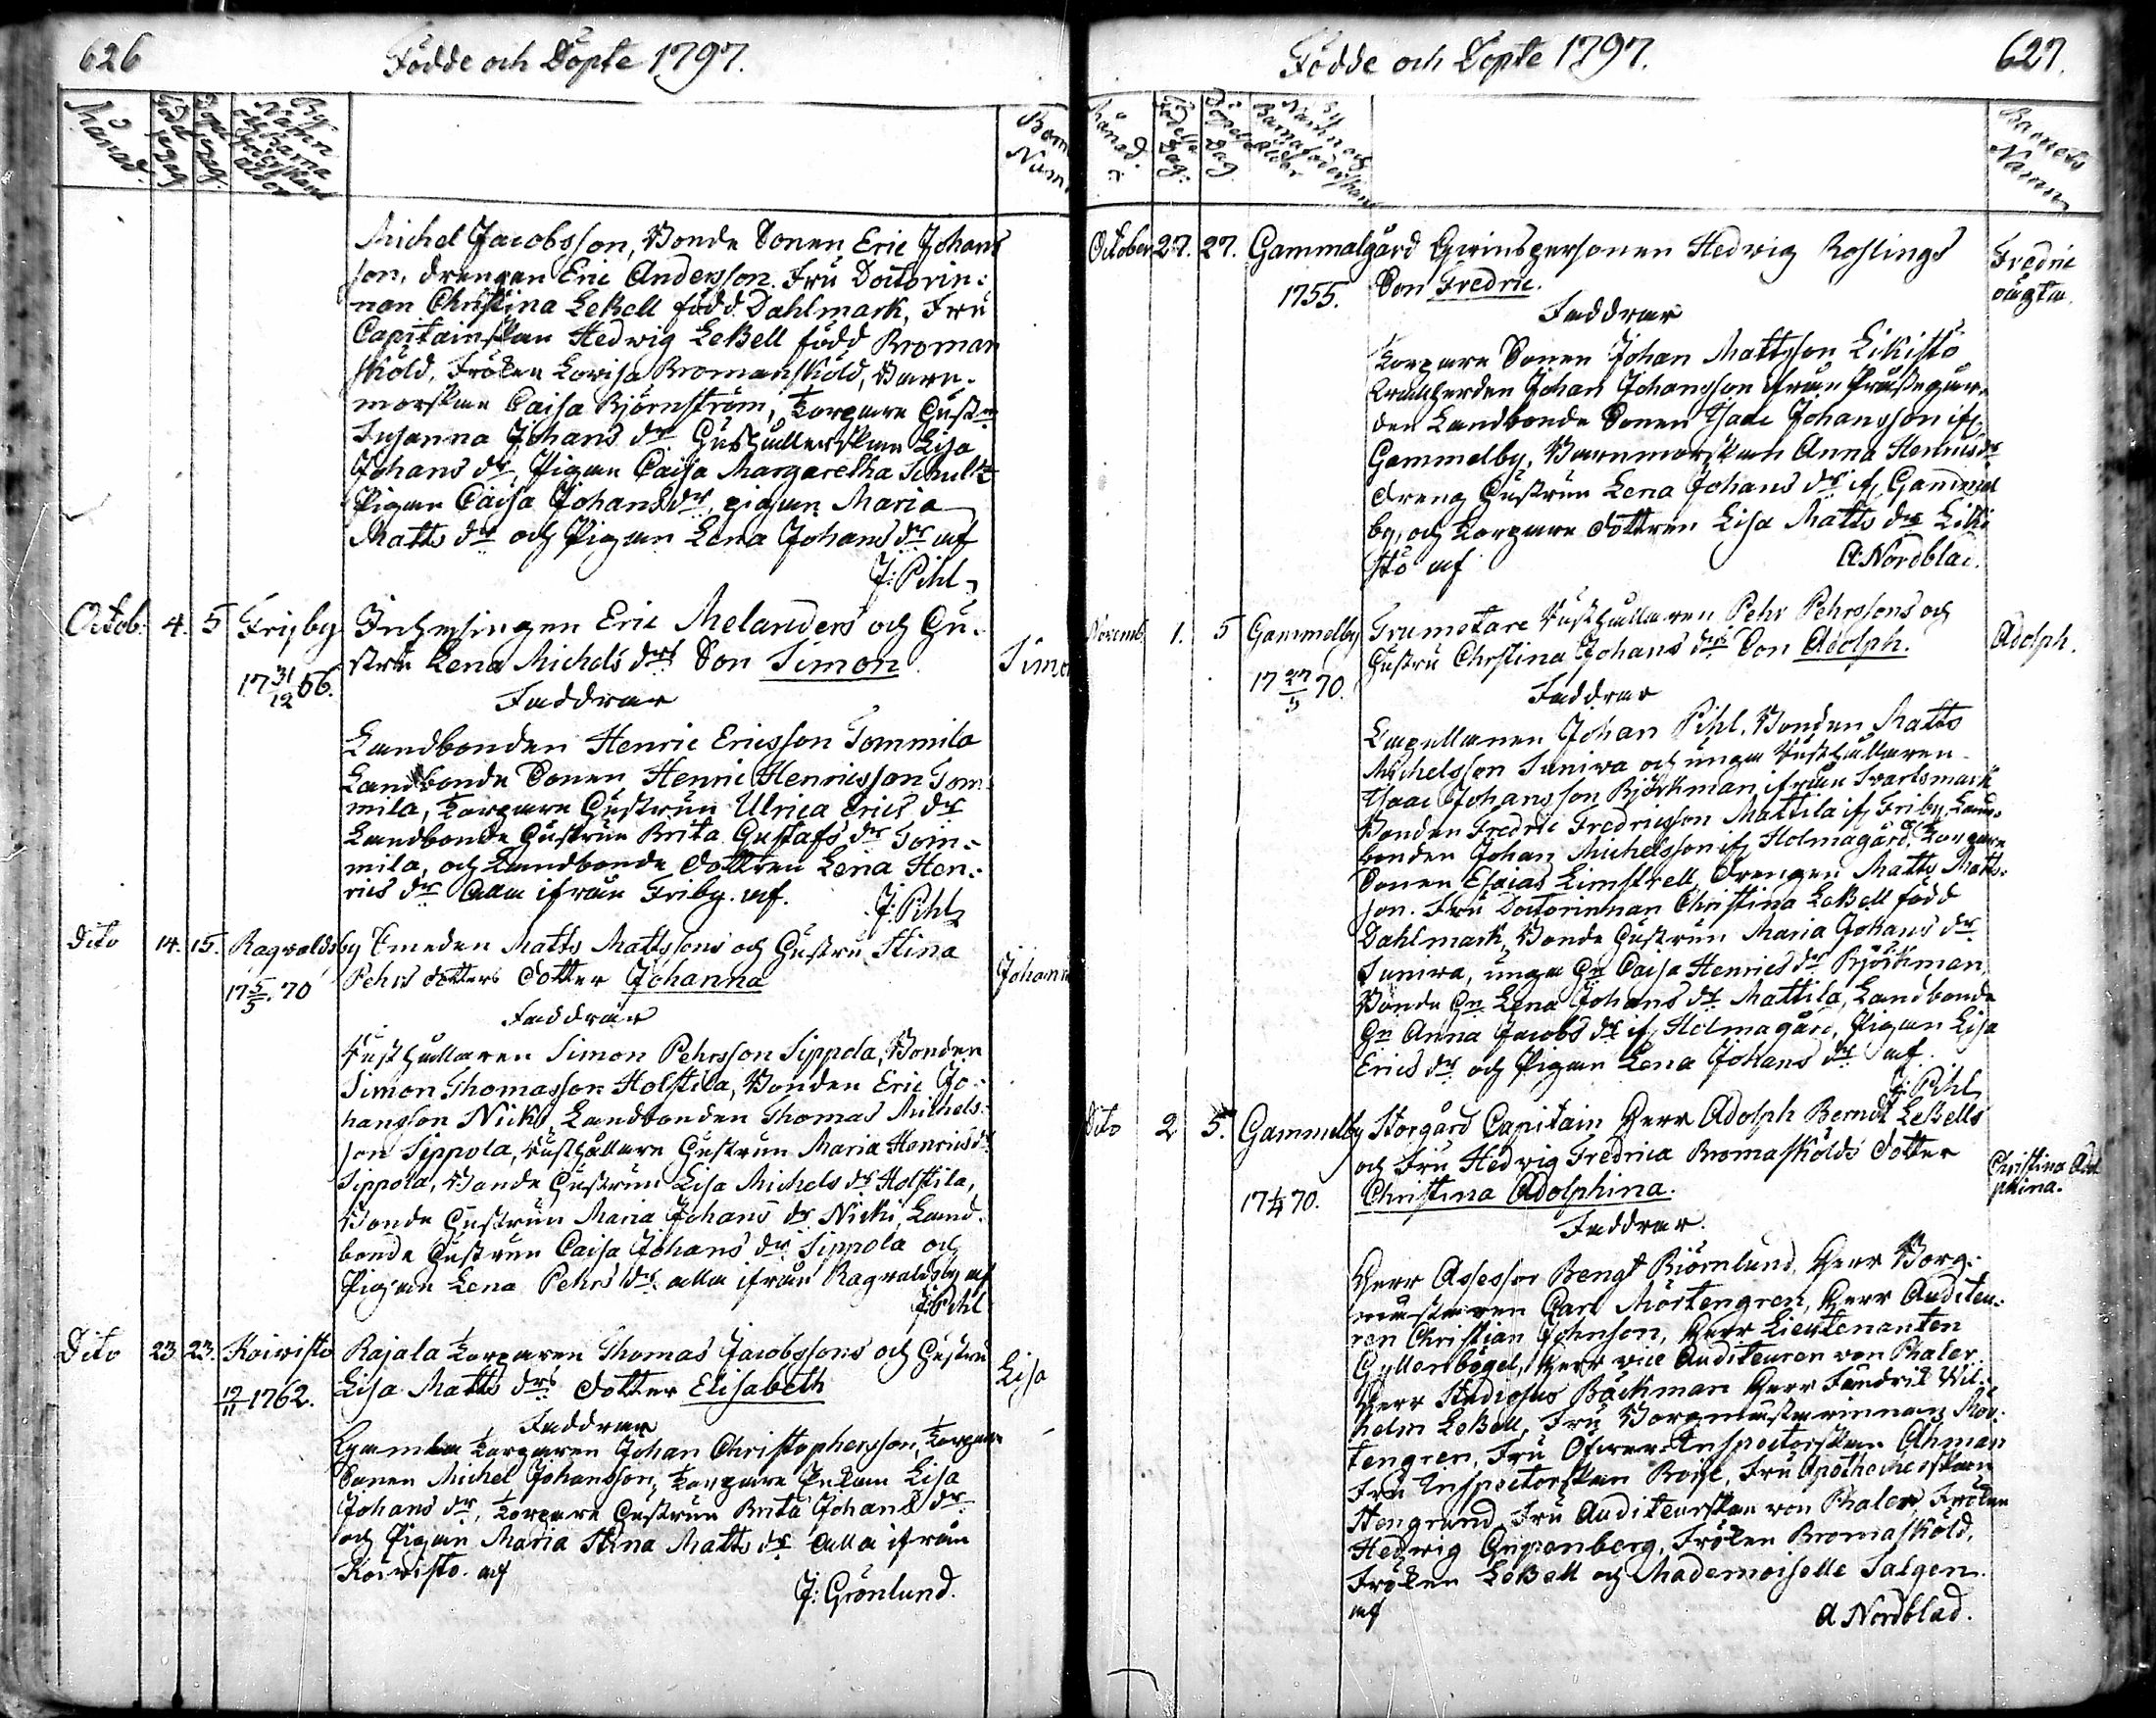 626
Födde och Döpte 1797.
Månad.
Född
Döpt
By
Namn
Namn
Michel Jacobsson, Bonde Sonen Eric Johans
son, drengen Eric Andersson. Fru Doctorin:
nan Christina LeBell född Dahlmark, Fru
Capitainskan Hedwig LeBell född Broman
sköld, Fröken Lovisa Bromansköld, Barn-
morskan Caisa Björnström, Torpare
Susanna Johans dr Lisa
Johans dr, Pigan Caisa Margaretha Schultz
Pigan Caisa Johans dr, pigan Maria
Matts dr och Pigan Lena Johans dr af
J: Pihl
Octob: 4. 5 Friby Eric Melanders och Hu-
stru Lena Michels drs Son Simon.
17 31/12 56.
Faddrar
Landbonden Henric Ericsson Tommila
Landbonde Sonen Henric Henricsson Tom-
mila, Torpare Hustrun Ulrica Erics dr
Landbonde Hustrun Brita Gustafs dr Tom-
mila, och Landbonde dottren Lena Hen-
rics dr alla ifrån Friby. af.
J: Pihl
Dito 14. 15. Ragvaldsby Smeden Matts Mattssons och Hustru Stina
Pehrs dotters dotter Johanna
17 5/5 70
Faddrar
Rusthållaren Simon Pehrsson Sippola, Bonden
Simon Thomasson Holstila, Bonden Eric Jo-
hansson Nicki, Landbonden Thomas Michels-
son Sippola, Rusthållare Hustrun Maria Henrics dr
Sippola, Bonde Hustrun Lisa Michels dr Holstila,
Bonde Hustrun Maria Johans dr Nicki, Land-
bonde Hustrun Caisa Johans dr Sippola och
Pigan Lena Pehrs dr alla ifrån Ragvaldsby af
J: Pihl
Dito 23 23. Koivisto Rajala Torparen Thomas Jacobssons och Hustru Lisa
Lisa Matts drs dotter Elisabeth
19/11 1762.
Faddrar
Gamla Torparen Johan Christophersson, Torpare
Sonen Michel Johansson, Torpare Enkan Lisa
Johans dr, Torpare Hustrun Brita Johans dr
och Pigan Maria Stina Matts dr alla ifrån
Koivisto. af
J: Grönlund.
Födde och Döpte 1797. 627.
Månad.
Födelse
Dag.
Döpelse
Dag.
By
Namn och
ålder
Barnets
Namn
October 27. 27. Gammalgård Qvinspersonen Hedwig Roslings Fredric
Son Fredric. oägta.
1755.
Faddrar
Torpare Sonen Johan Mattsson Likistö
Johan Johansson ifrån Prästegår-
den Landbonde Sonen Isaac Johansson if.
Gammelby, Barnmorskan Anna Henrics dr
dreng Hustrun Lena Johans dr if. Gammel
by, och Torpare dottren Lisa Matts dr Liki
stö af
A: Nordblad.
Novemb. 1. 5 Gammelby Rusthållaren Pehr Pehrssons och Adolph.
Hustru Christina Johans drs Son Adolph.
17 27/5 70.
Faddrar
Capellanen Johan Pihl, Bonden Matts
Michelsson Suniva och unga Rusthållaren
Isaac Johansson Björkman ifrån Svartsmark
Bonden Fredric Fredricsson Mattila if. Friby, Land-
bonden Johan Michelsson if. Holmagård, Torpare
Sonen Esaias Limstrell, drengen Matts Matts-
son. Fru Doctorinnan Christina LeBell född
Dahlmark, Bonde Hustrun Maria Johans dr
Suniva, unga Hn Caisa Henrics dr Björkman
Bonde Hn Lena Johans dr Mattila, Landbonde
Hn Anna Jacobs dr if. Holmagård, Pigan Lisa
Erics dr och Pigan Lena Johans dr af.
J: Pihl
Dito 2 5. Gammelby Storgård Capitain Herr Adolph Berndt LeBells
och Fru Hedwig Fredrica Bromaskölds dotter Christina Adol
17 1/4 70. Christina Adolphina. phina.
Faddrar.
Herr Assessor Bengt Björnlund, Herr Borg-
mästaren Carl Mörtengren, Herr Auditeu-
ren Christian Johnson, Herr Lieutenanten
Gyllenbögel, Herr vice Auditeuren von Phaler
Herr Studiosus Bäckman Herr Fändrik Wil-
helm LeBell, Fru Borgmästarinnan Mör-
tengren, Fru Öfver-Inspectorskan Åhman
Fru Inspectorskan Boije, Fru Apothecarskan
Stengrund, Fru Auditeurskan von Phaler Fröken
Hedwig Gripenberg, Fröken Bromasköld,
Fröken LeBell och Mademoiselle Salgen.
af
A Nordblad.